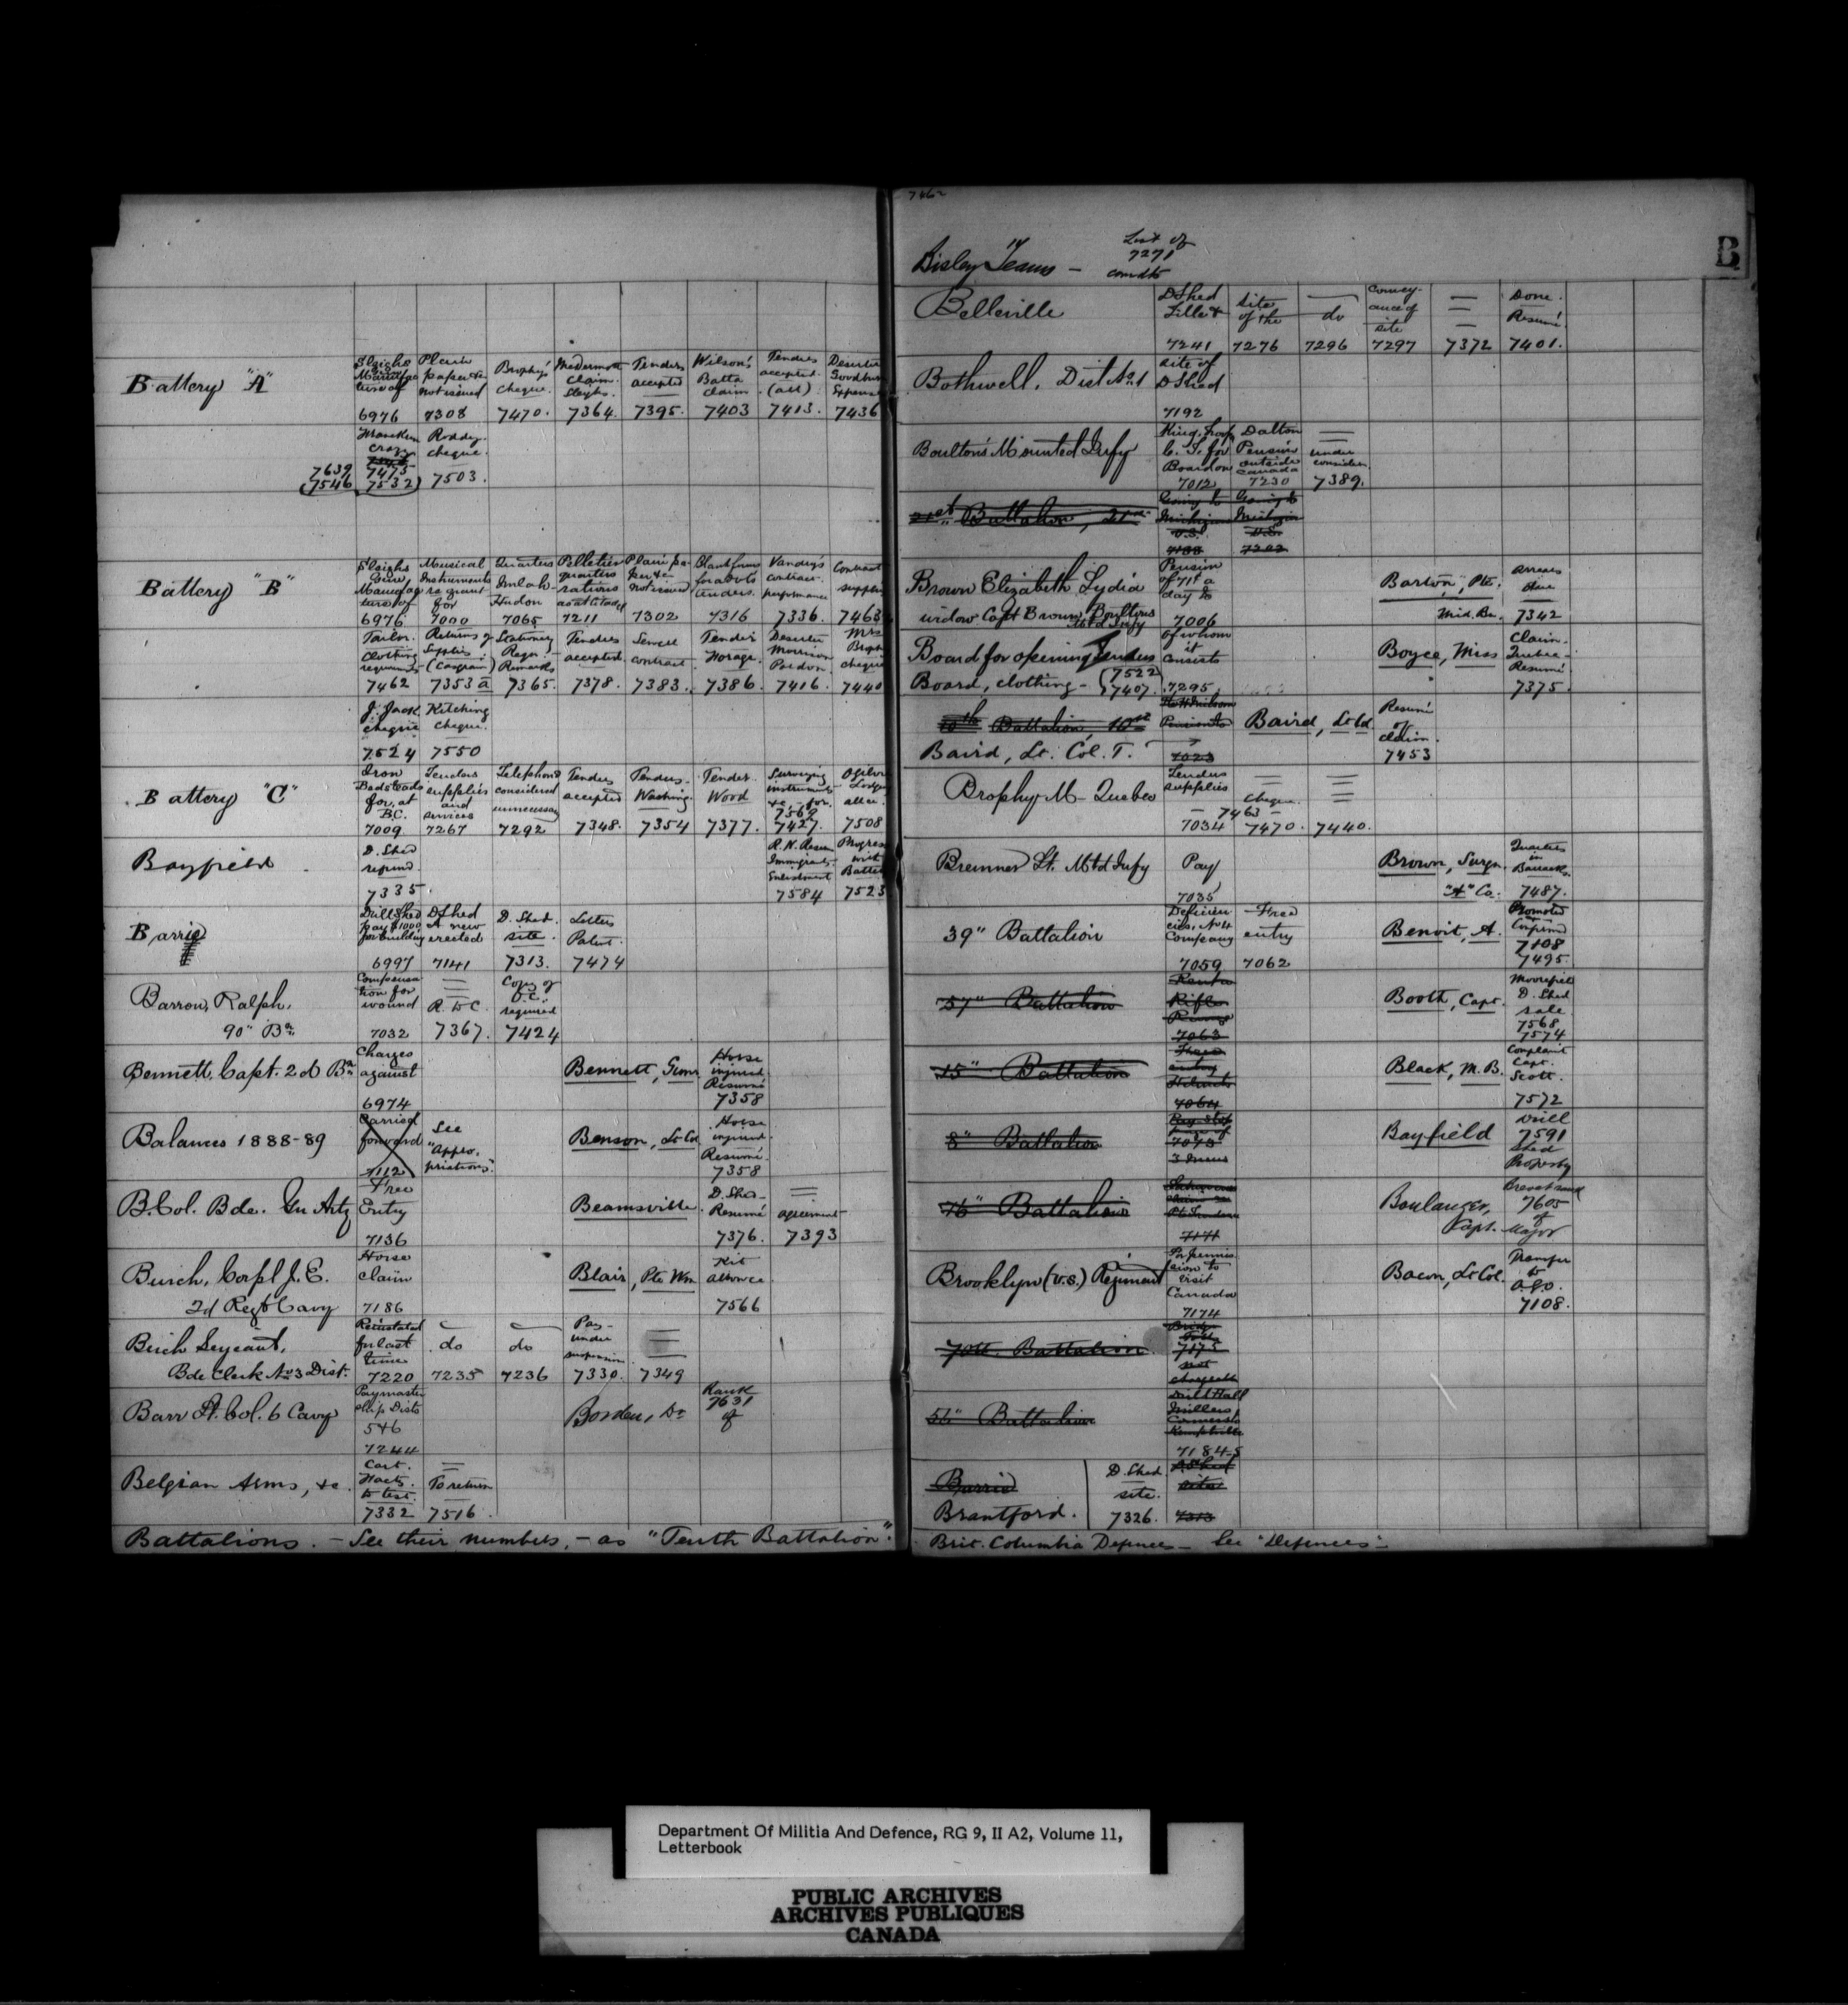 Battery "A"
6976 7308 7470. 7364. 7395. 7403 7413. 7436
Plain paper &c not issued
Brophy's cheque.
McDermott claim. Sleighs.
Tenders accepted
Wilson's Batta claim
Tenders accepted. (all)
Roddy cheque.
7639 7475 7503.
(7546 7532)
Battery "B"
Musical Instruments
Quarters Imlah - Hudon
Pelletier quarters
Plain paper &c not issued
Vandry's contract performance
Contract supplies
6976 7000 7065 7211 7302 7316 7336. 7463
Tailor. Clothing requirements
Returns of Supplies. (Casgrain)
Stationery Regn. Remarks
Tenders accepted.
Sewell contract.
Tender Forage.
Deserter Morrison Pardon.
7462 7353a 7365. 7378. 7383. 7386. 7416. 7440
J. Jack cheque
Kitching cheque.
7524 7550
Battery "C"
Iron Bedsteads for, at B.C.
Tenders supplies and services
Telephone considered unnecessary
Tenders accepted
Tenders. Washing.
Tender. Wood
Surveying instruments &c, for.
7562
7009 7267 7292 7348. 7354 7377. 7427. 7508
Bayfield
D. Shed refund
7335.
Immigrants Enlistment
7584 7523
Barrie
Drill Shed pay $1000 for building
D Shed A new erected
D. Shed. site.
Letters Patent.
6997 7141 7313. 7474
Barron, Ralph.
90" Bn
Compensation for wound
R. to C.
Copy of O.C. required
7032 7367. 7424
Bennett, Capt. 2d Bn
Charges against
6974
Bennett, Gunr
Horse injured. Resumé
7358
Balances 1888-89
Carried forward
7112
See "Appropriations".
Benson, Lt Col
Horse injured. Resumé.
7358
B. Col. Bde. Gn Arty
Free Entry
7136
Beamsville.
D. Shed - Resumé
7376.
agreement
7393
Burch, Corpl J. E.
2d Regt Cavy
Horse claim
7186
Blair, Pte Wm
Kit allowce.
7566
Birch Sergeant,
Bde Clerk No 3 Dist.
Reinstated for last time
do do
Pay - under suspension.
7220 7235 7236 7330. 7349
Barr Lt. Col. 6 Cavy
Paymastership Dists 5 & 6
7244
Borden, Dr
Rank
7631
of
Belgian Arms, &c.
Cart. Facty. to test.
To return
7332 7516.
Battalions. - See their numbers, - as "Tenth Battalion".
7462
B
Bisley Teams -
List of
7271
comdts
Belleville
D Shed
site of the
do
Conveyance of site
Done. Resumé.
7241 7276 7296 7297 7372 7401.
Bothwell. Dist No 1
site of D Shed
7192
Boulton's Mounted Infy
Dalton Pension outside Canada
under consider.
7012 7230 7389.
21st Battalion, 21st
Going to Michigan U.S.
Going to Michigan U.S.
7188 7202
Brown Elizabeth Lydia
widow Capt Brown Boultons Mtd Infy
Pension of 71c a day to
7006
Barton, Pte.
Mid. Bn.
Arrears due
7342
Board for opening Tenders
of whom it consists
Board, clothing - (7522
7407. 7295.
Boyce, Miss
Claim - Quebec - Resumé
7375.
10th Battalion, 10th
7023
Baird, Lt. Col. T.
Baird, Lt Col
Resumé of claim.
7453
Brophy M - Quebec
Tenders supplies
Cheque
7463 -
7034 7470. 7440.
Bremner Lt. Mtd Infy
Pay
7035
Brown, Surgn.
"A" Co.
Quarters in Barracks.
7487.
39" Battalion
Deficiencies, No 4 Company
Free entry
7059 7062
Benoit, A.
Promoted Confirmed
7108
7495.
57" Battalion
7063
Booth, Capt.
Moorefield D. Shed sale.
7568
7574
15" Battalion
Free entry Helmets
7064
Black, M. B.
Complaint Capt. Scott.
7572
8" Battalion
Bayfield
Drill
7591
Shed Property
76" Battalion
7171
Boulanger, Capt.
Brevet rank
7605
of Major
Brooklyn (U.S.) Regiment
For permission to visit Canada
7174
Bacon, Lt Col.
Transfer to
7108.
70th. Battalion
7175
not chargeable
56" Battalion
Drill Hall Millers Corners & Kemptville
7184-5
Barrie
D Shed site
7313
Brantford.
D. Shed site.
7326.
Brit. Columbia Defences - See "Defences" -
Department Of Militia And Defence, RG 9, II A2, Volume 11,
Letterbook
PUBLIC ARCHIVES
ARCHIVES PUBLIQUES
CANADA